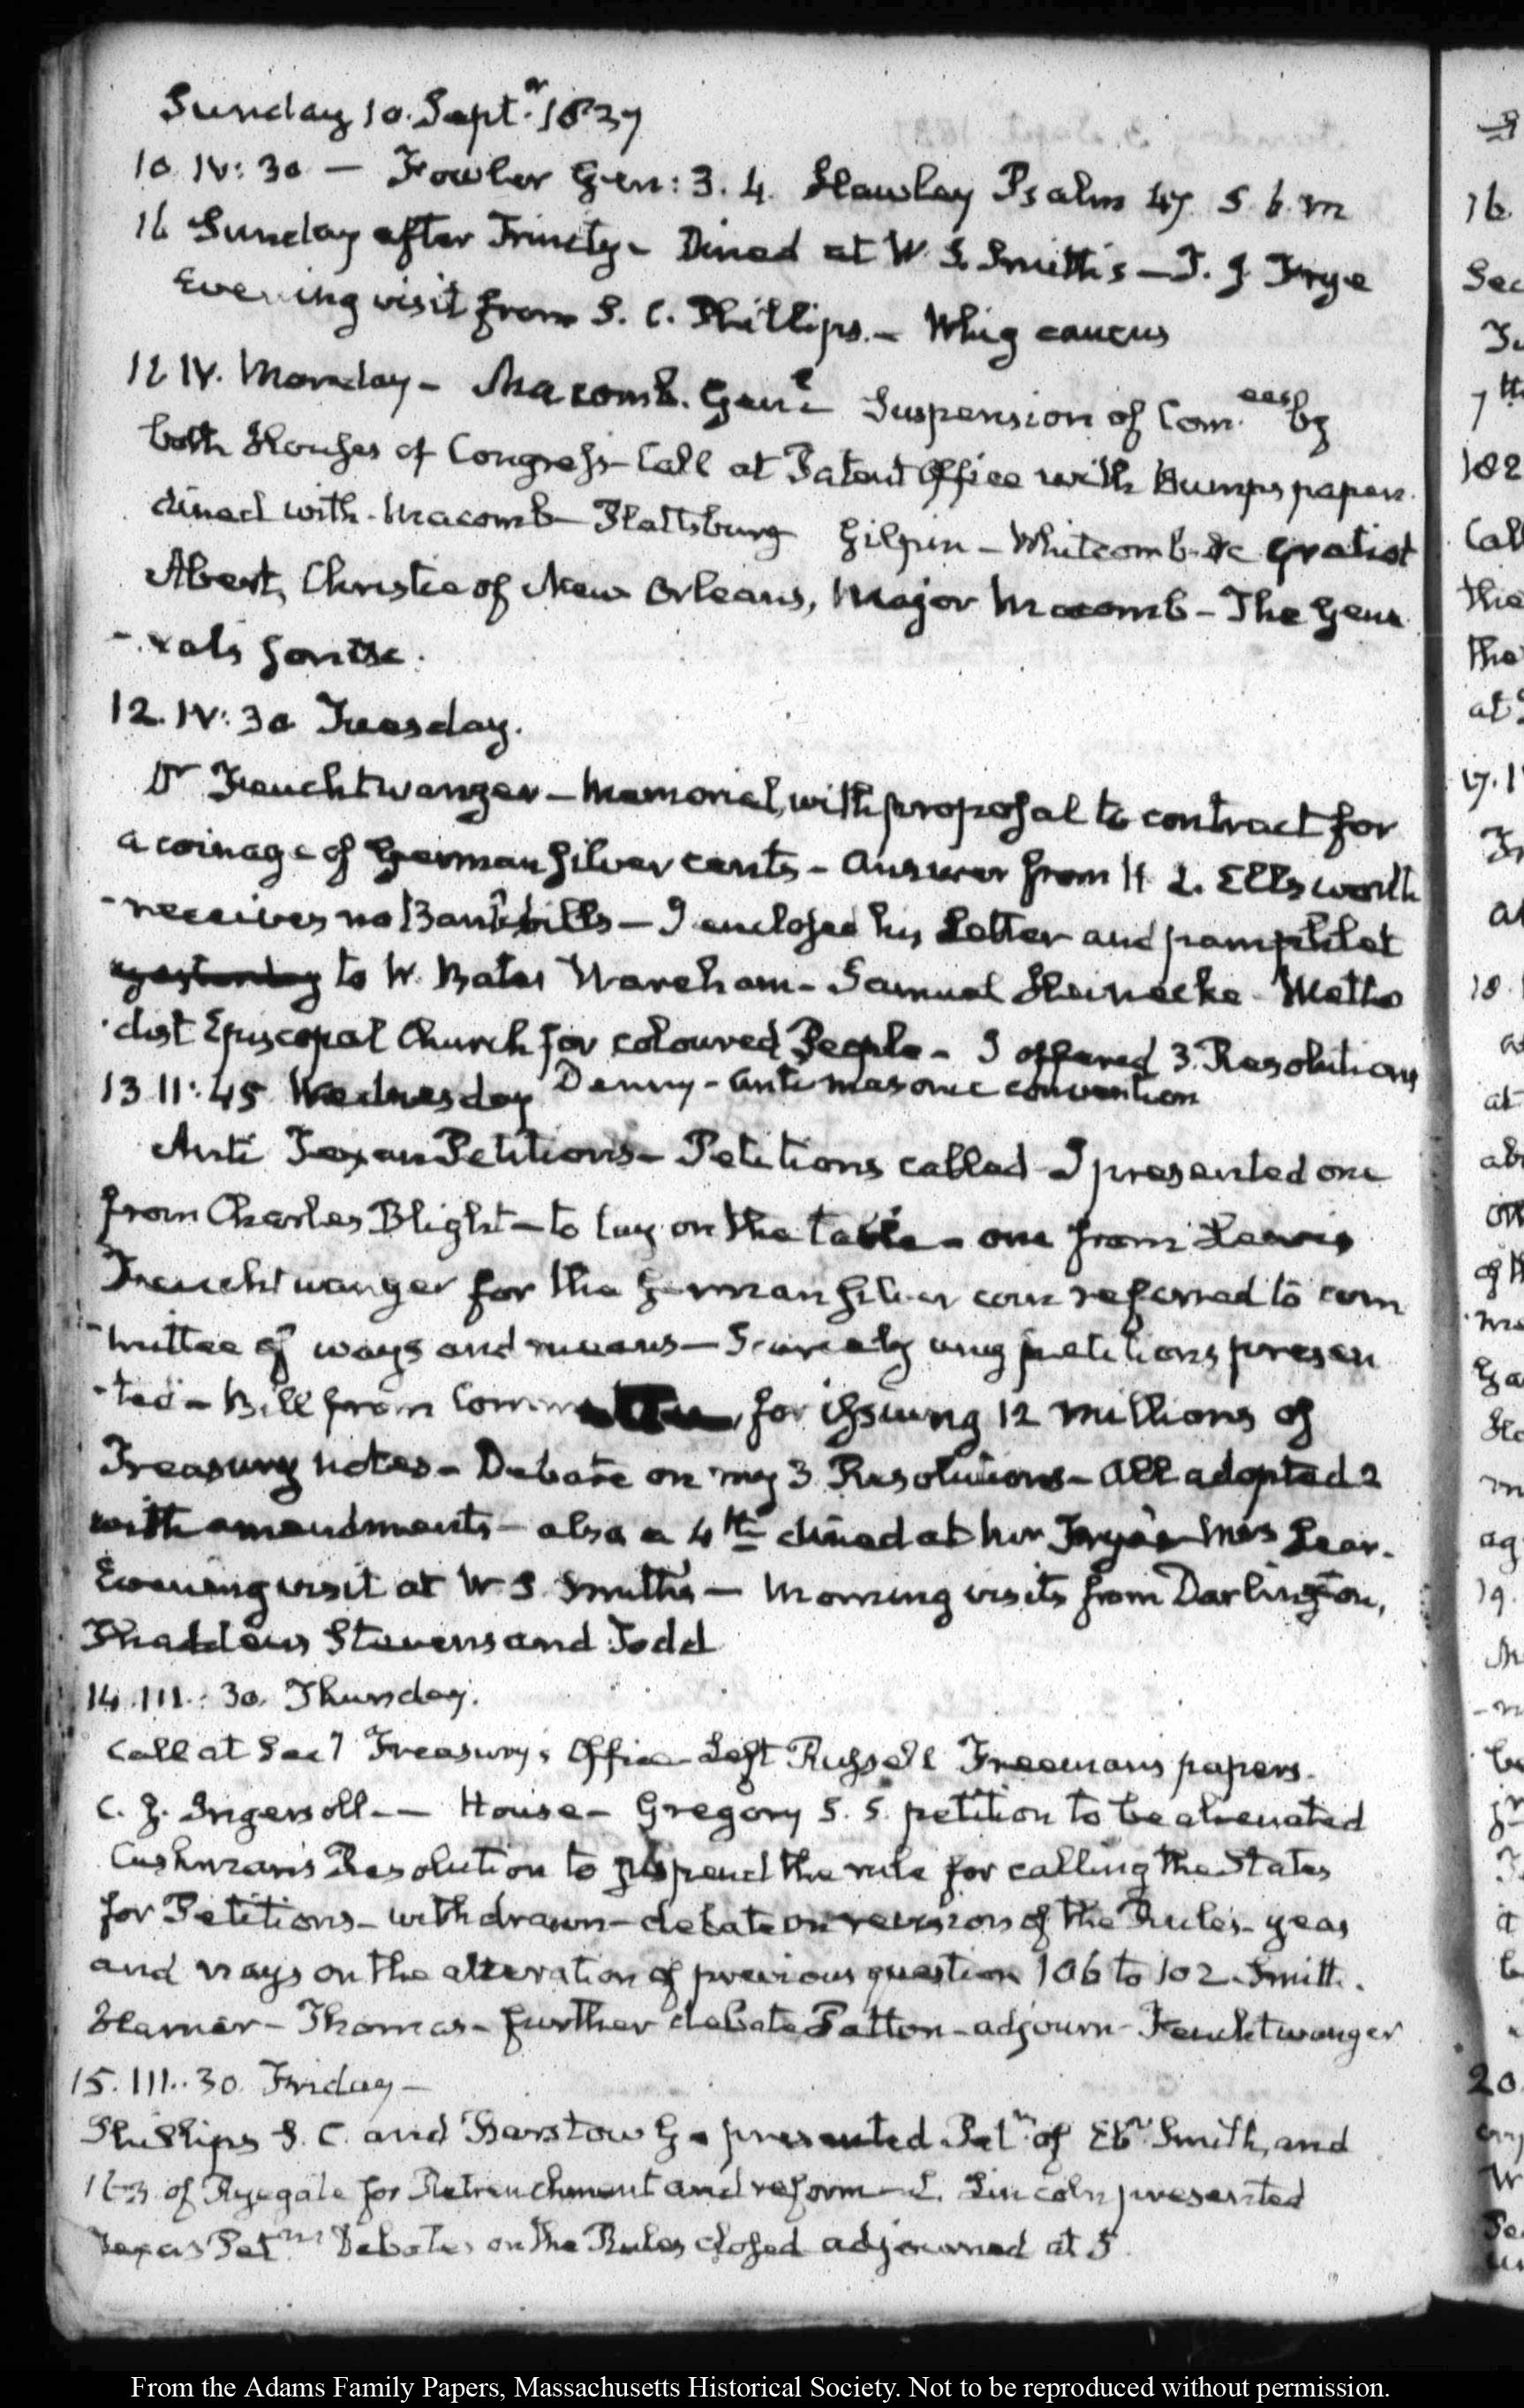 Sunday 10. Sept.r 1837
10 IV: 30 — Fowler Gen: 3. 4. Hawley Psalm 47. 5. 6. m
16 Sunday after Trinity - Dined at W. S. Smith's — T. J. Frye
Evening visit from S. C. Phillips. — Whig caucus
11 IV. Monday - Macomb. Gen.l Suspension of Com.ees by
both Houses of Congress - Call at Patent Office with Bumps papers.
dined with Macomb - Plattsburg Gilpin - Whitcomb - &c Gratiot
Abert, Christie of New Orleans, Major Macomb - The Gene
-rals
12. IV: 30 Tuesday.
Dr Feuchtwanger - Memorial, with proposal to contract for
a coinage of German silver cents - Answer from H. L. Ellsworth
- receives no Bank bills - I enclosed his Letter and pamphlet
yesterday to W. Bates Wareham - Samuel Heinecke Metho
-dist Episcopal Church for coloured People - I offered 3. Resolutions
13 II: 45 Wednesday Denny - Anti masonic convention
Anti Texan Petitions - Petitions called - I presented one
from Charles Blight - to lay on the table - one from Lewis
Feuchtwanger for the German silver coin referred to com
-mittee of ways and means - Scarcely any petitions presen
-ted - Bill from Comm for issuing 12 millions of
Treasury notes - Debate on my 3 Resolutions - All adopted 2
with amendments - also a 4th dined at Frye's Mrs Lear.
Evening visit at W. S. Smith's — Morning visits from Darlington,
Thaddeus Stevens and Todd
14. III: 30. Thursday.
Call at Sec.y Treasury's Office - Left Russell Freeman's papers.
C. J. Ingersoll - — House - Gregory S. S. petition to be alienated
Cushman's Resolution to suspend the rule for calling the States
for Petitions - withdrawn - debate on revision of the Rules - yeas
and nays on the alteration of previous question 106 to 102 Smith.
Hamer - Thomas - further debate Patton - adjourn - Feuchtwanger
15. III: 30. Friday —
Phillips S. C. and Barstow G. presented Pet.n of Eb.r Smith, and
163 of Ryegate for Retrenchment and reform - L. Lincoln presented
Texas Pet.ns Debate on the Rules closed adjourned at 5
From the Adams Family Papers, Massachusetts Historical Society. Not to be reproduced without permission.